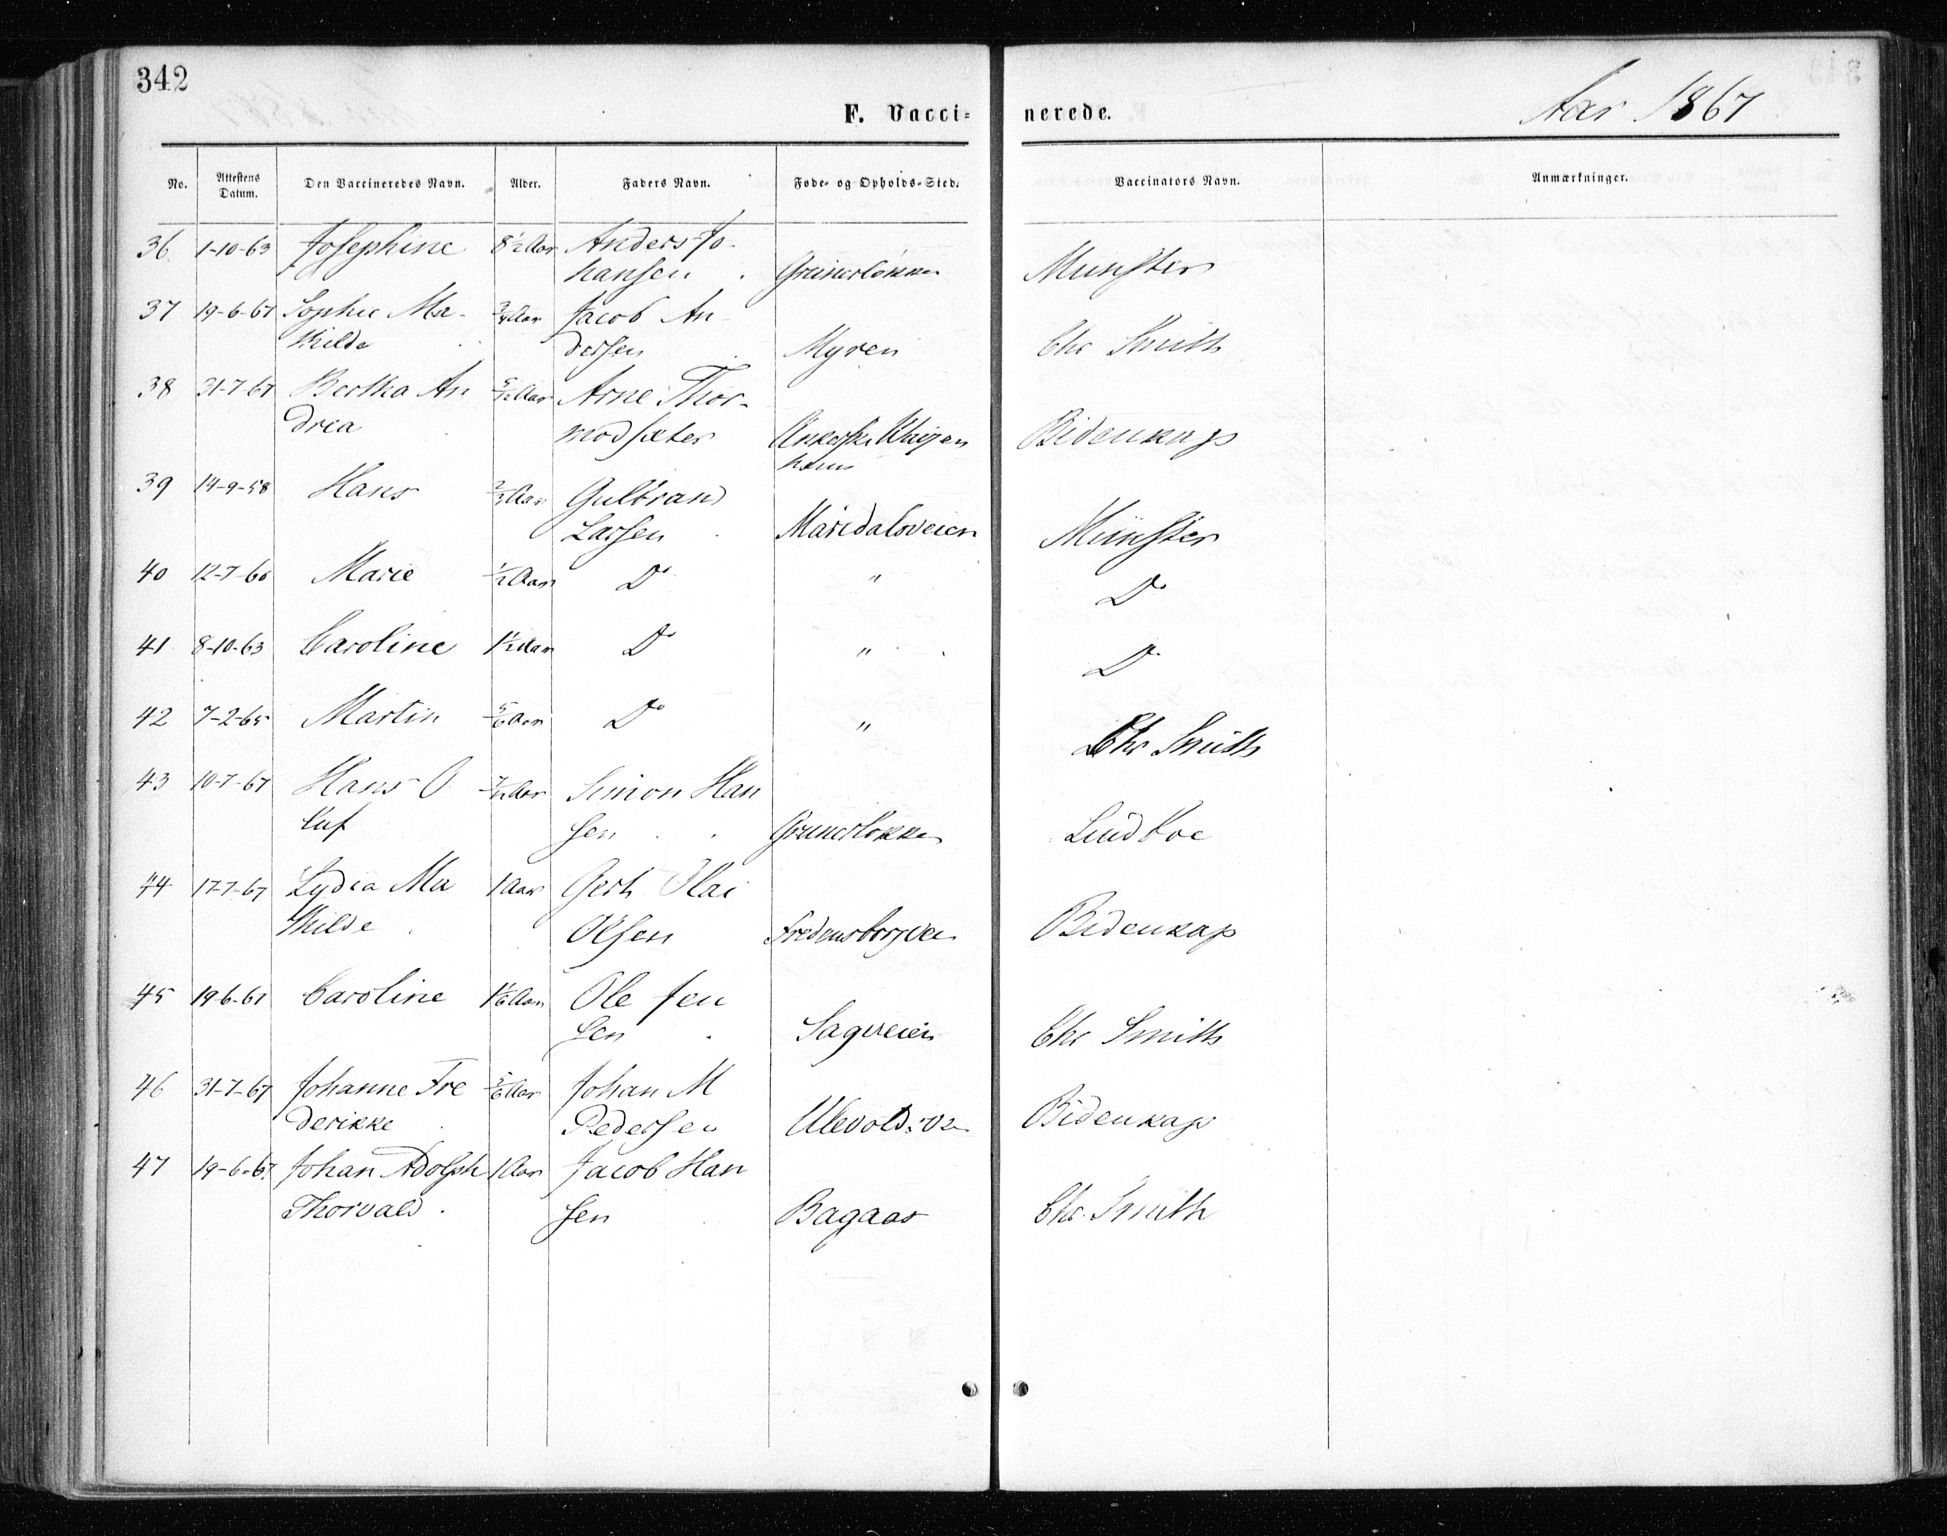 342
F. Vacci=
nerede.
Aar 1867
No. Attestens Datum. Den Vaccineredes Navn. Alder. Faders Navn. Føde- og Opholds-Sted. Vaccinators Navn. Anmærkninger.
36 1-10-63 Josephine 8½ Aar Anders Jo-
hansen Grünerløkken Munster
37 19-6-67 Sophie Ma- ¾ Aar Jacob An
thilde dersen Myren Chr Smith
38 31-7-67 Bertha An 5/12 Aar Arne Thor-
drea modsæter Ankerske
Bidenkap
39 14-9-58 Hans 2/3 Aar Gulbrand
Larsen Maridalsveien Münster
40 12-7-60 Marie ½ Aar Do " Do
41 8-10-63 Caroline 1½ Aar Do " Do
42 7-2-65 Martin 5/6 Aar Do " Chr Smith
43 10-7-67 Hans O 7/12 Aar Simon Han
luf sen Grunerløkken Lindboe
44 17-7-67 Lydia Ma 1 Aar Gerh Olai
thilde Olsen Fredensborgvei Bidenkap
45 19-6-67 Caroline 1 1/6 Aar Ole Jen
sen Sagveien Chr Smith
46 31-7-67 Johanne Fre 5/6 Aar Johan M
derikke Pedersen Ulevoldsve Bidenkap
47 19-6-67 Johan Adolph 1 Aar Jacob Han
Thorvald. sen Bagaas Chr. Smith